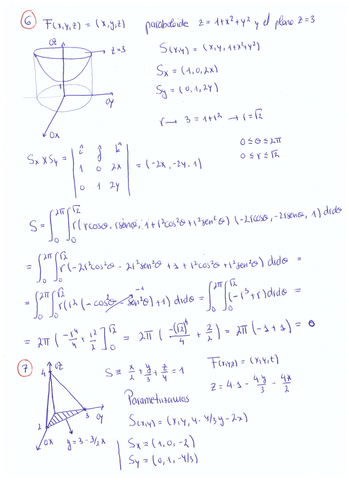 6 F(x,y,z) = (x,y,z) paraboloide z = 1+x²+y² y el plano z=3
OZ
z=3
1
OY
OX
S(x,y) = (x,y,1+x²+y²)
Sx = (1,0,2x)
Sy = (0,1,2y)
r → 3 = 1+r² → r=√2
0≤θ≤2π
0≤r≤√2
Sx×Sy = | i j k | 1 0 2x | 0 1 2y | = (-2x, -2y, 1)
S = ∫₀^2π ∫₀^√2 r(rcosθ, rsenθ, 1+r²cos²θ+r²sen²θ) (-2rcosθ, -2rsenθ, 1) drdθ
= ∫₀^2π ∫₀^√2 r(-2r²cos²θ - 2r²sen²θ + 1 + r²cos²θ + r²sen²θ) drdθ =
= ∫₀^2π ∫₀^√2 r(r²(-cos²θ - sen²θ)+1) drdθ = ∫₀^2π ∫₀^√2 (-r³+r) drdθ =
-1
= 2π (-r⁴/4 + r²/2)]₀^√2 = 2π (-(√2)⁴/4 + 2/2) = 2π (-1+1) = 0
7 OZ
4
3 OY
2
OX
y = 3-3/2x
S ≡ x/2 + y/3 + z/4 = 1
F(x,y,z) = (x,y,z)
Parametrizamos
S(x,y) = (x, y, 4-4/3y-2x)
Sx = (1,0,-2)
Sy = (0,1,-4/3)